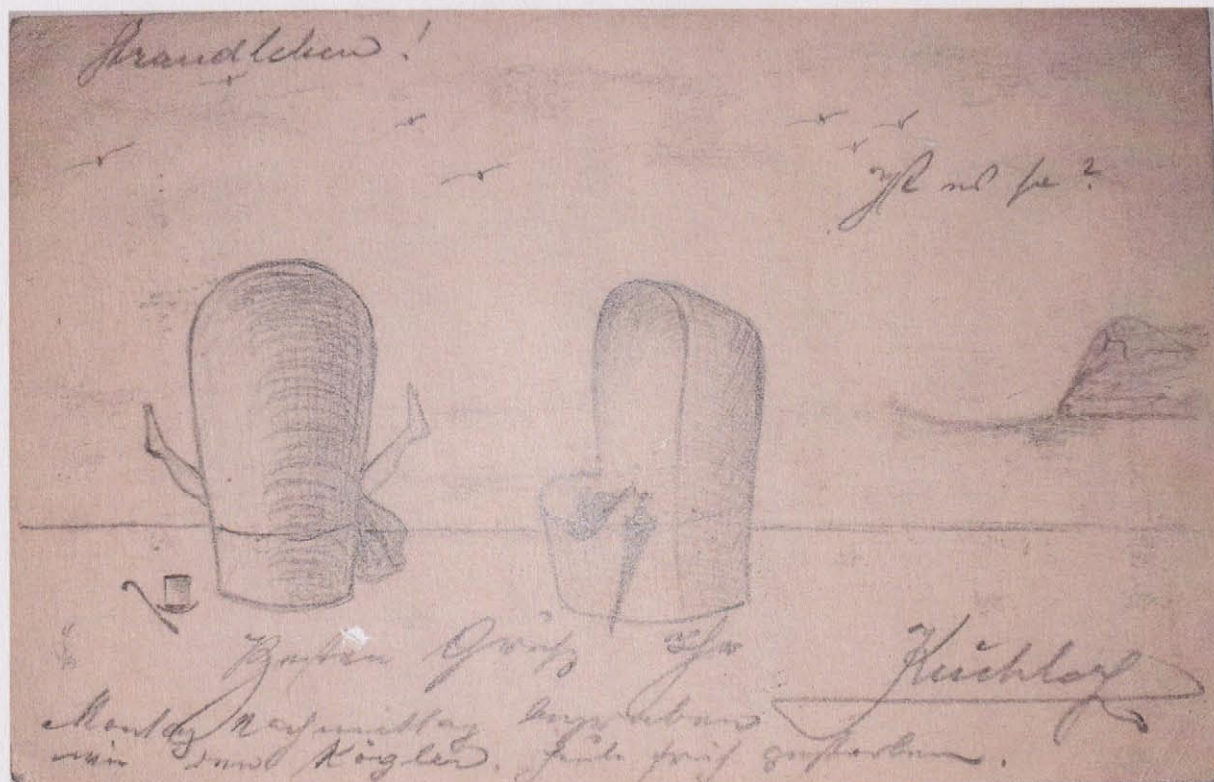 Strandleben!
Ist es so?
Besten Gruß Ihr
Montag Nachmittag begraben
wir den Kögler. Heute früh gestorben.